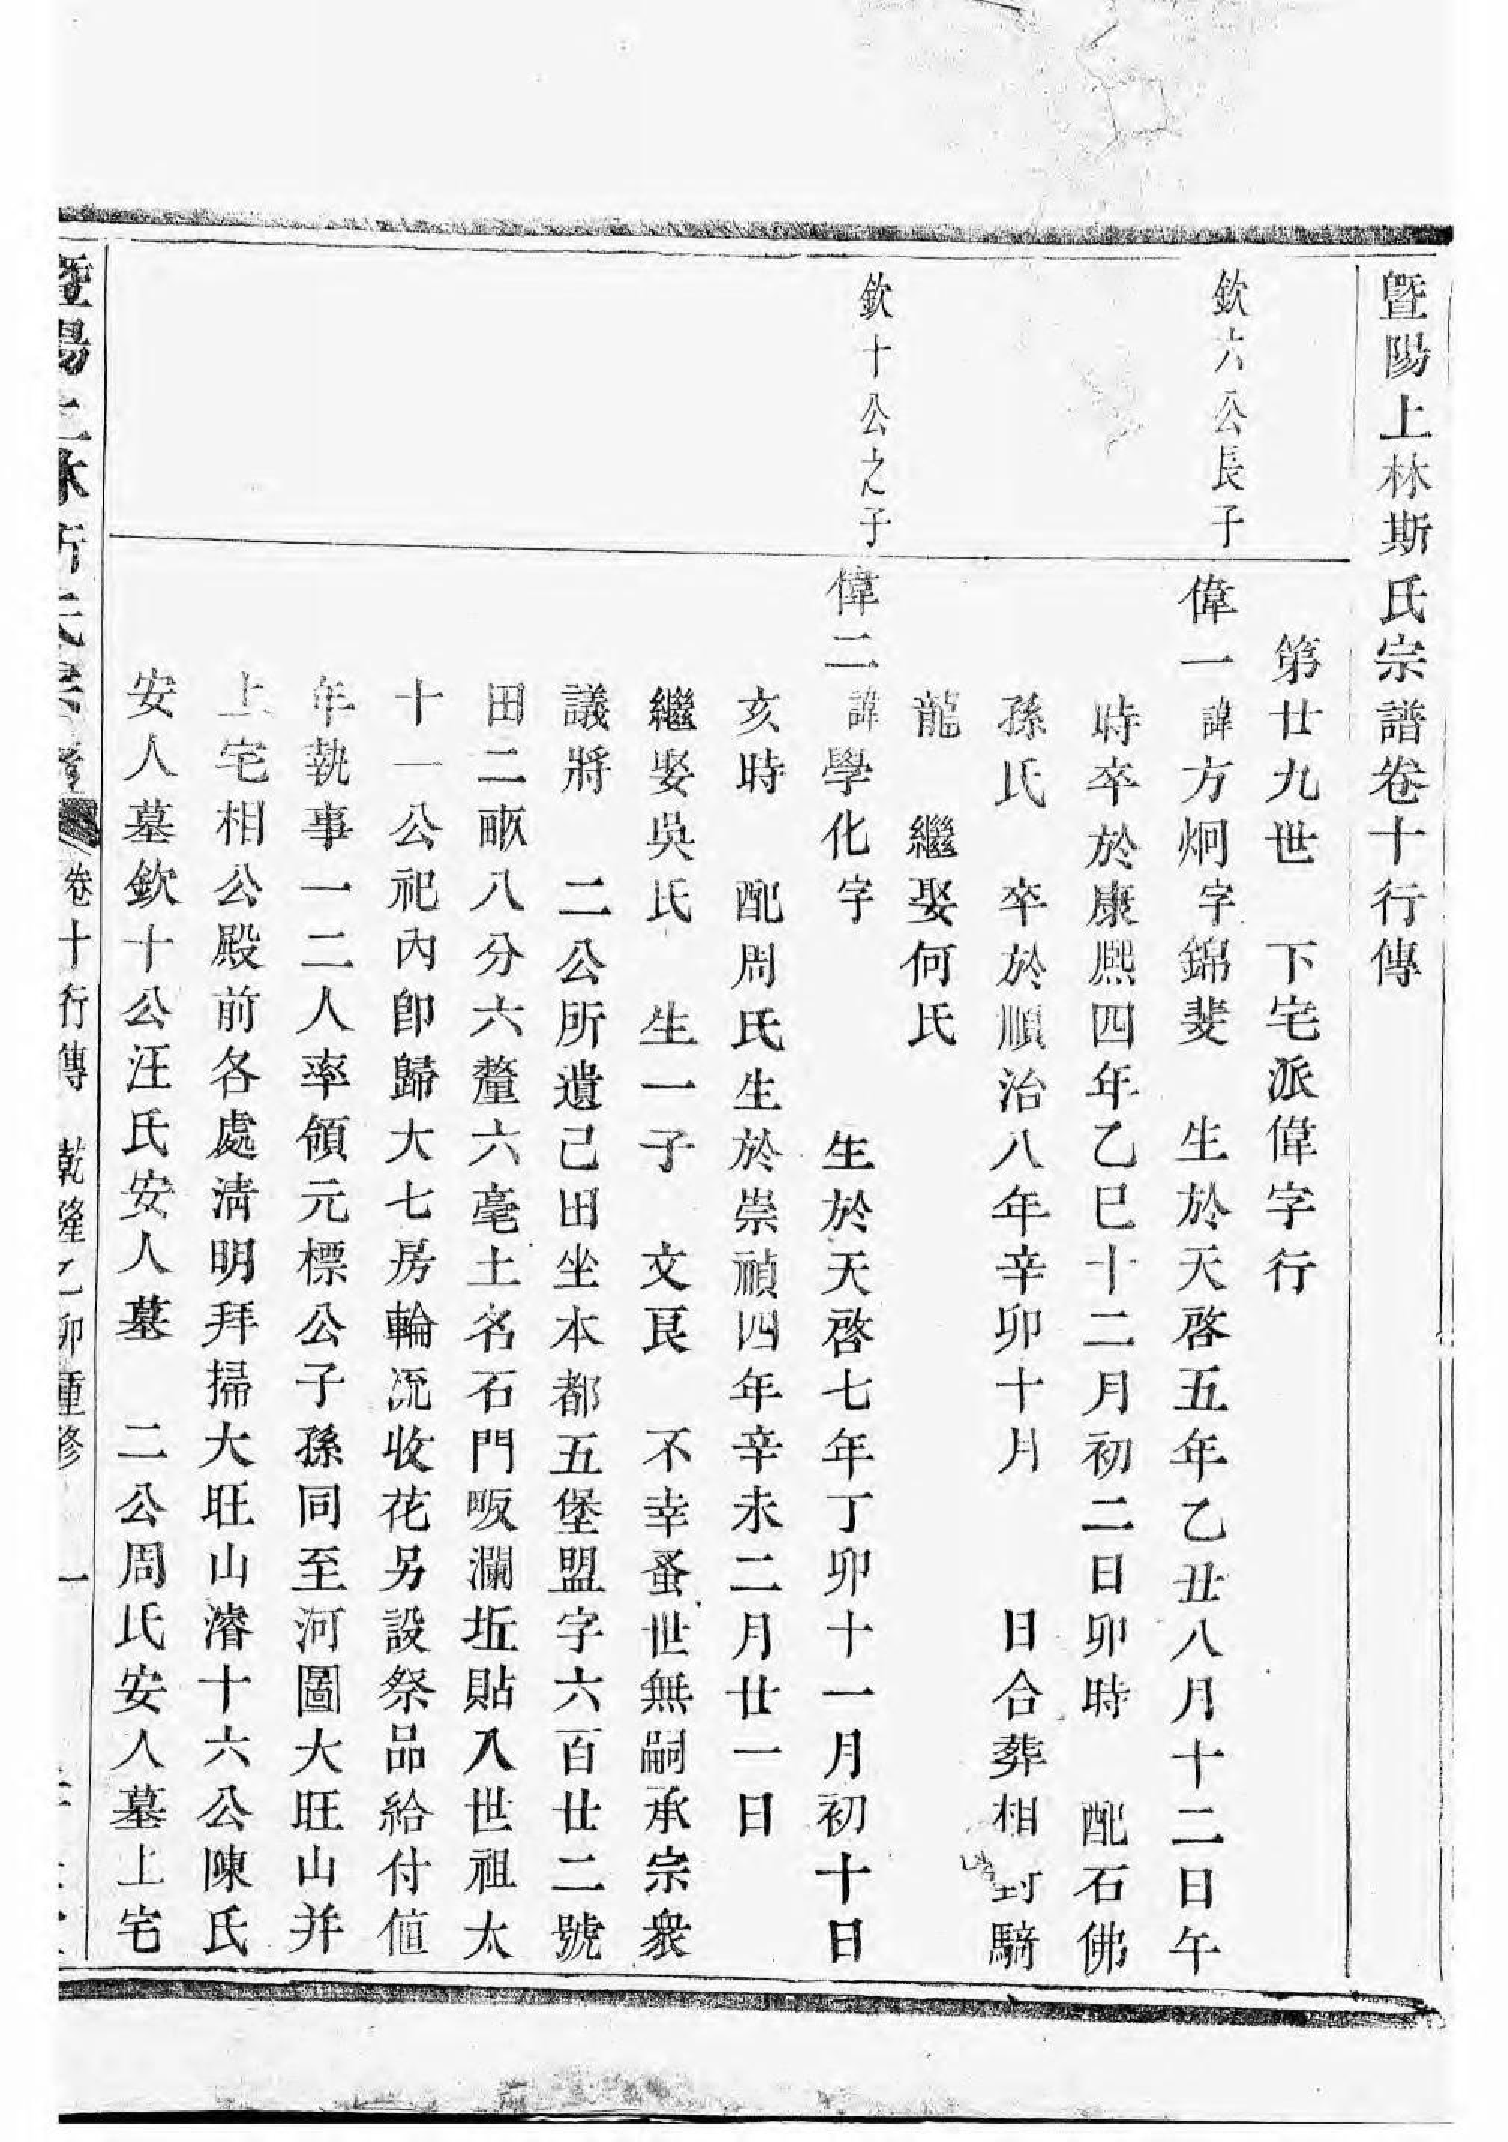 暨陽上林斯氏宗譜卷十行傳
第廿九世　下宅派偉字行
欽六公長子
偉一諱方炯字錦斐　生於天啓五年乙丑八月十二日午
時卒於康熙四年乙巳十二月初二日卯時　配石佛
孫氏　卒於順治八年辛卯十月　　日合葬相對騎
龍　繼娶何氏
欽十公之子
偉二諱學化字　　　生於天啓七年丁卯十一月初十日
亥時　配周氏生於崇禎四年辛未二月廿一日
繼娶吳氏　生一子　文艮　不幸蚤世無嗣承宗衆
議將　二公所遺己田坐本都五堡盟字六百廿二號
田二畝八分六釐六毫土名石門畈瀾坵貼入世祖太
十一公祀內卽歸大七房輪流收花另設祭品給付值
年執事一二人率領元標公子孫同至河圖大旺山并
上宅相公殿前各處淸明拜掃大旺山濬十六公陳氏
安人墓欽十公汪氏安人墓　二公周氏安人墓上宅
暨陽上林斯氏宗譜　卷十行傳　乾隆乙卯重修　一